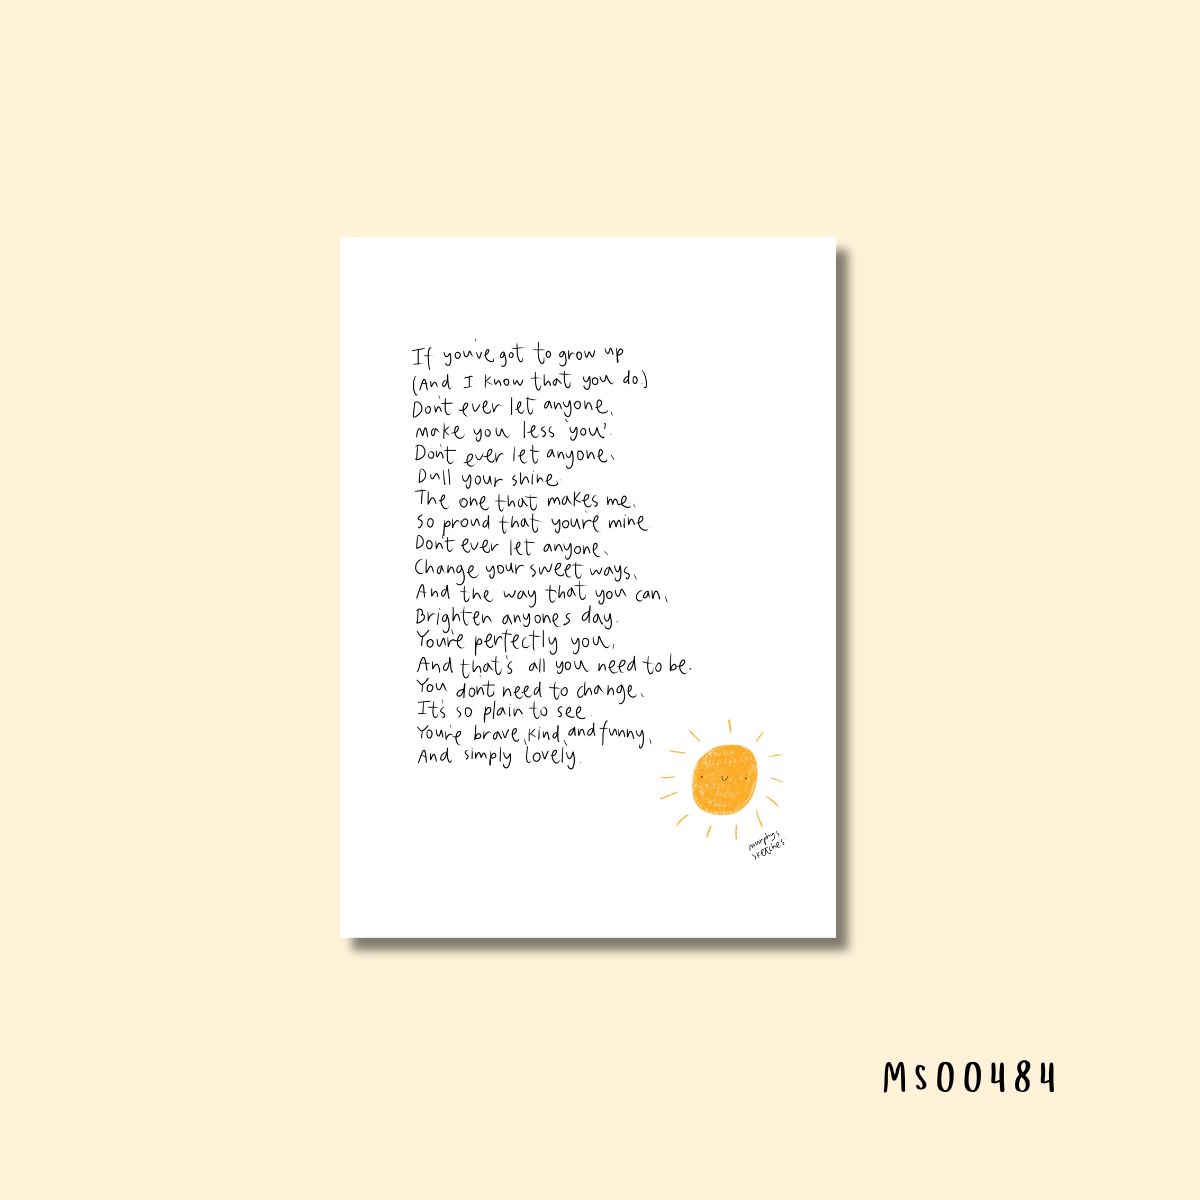 If you've got to grow up
(And I know that you do.)
Don't ever let anyone,
make you less 'you'.
Don't ever let anyone,
Dull your shine.
The one that makes me,
So proud that you're mine.
Don't ever let anyone,
Change your sweet ways,
And the way that you can,
Brighten anyones day.
You're perfectly you,
And that's all you need to be.
You don't need to change,
It's so plain to see.
You're brave, kind, and funny,
And simply lovely.
murphys
sketches.
MS00484